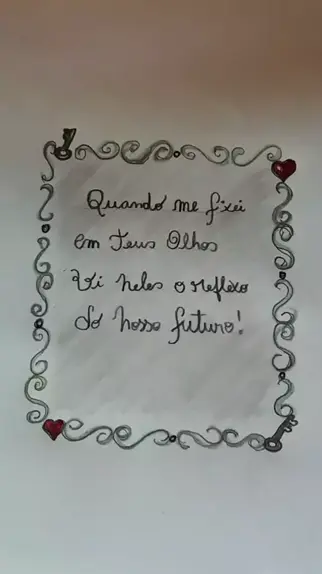 Quando me fixei
em Teus Olhos
Vi neles o reflexo
do nosso futuro!